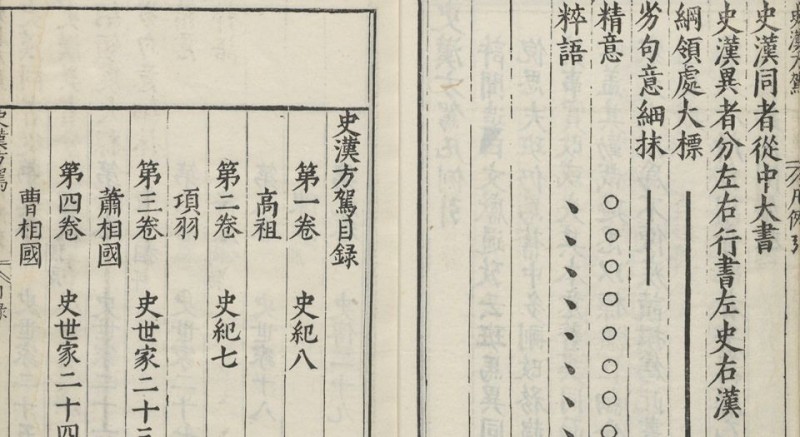 史漢方駕
凡例
史漢同者從中大書
史漢異者分左右行書左史右漢
綱領處大標
旁句意細抹
精意 ○○○○○○
粹語 、、、、、、
史漢方駕目錄
第一卷 史紀八
高祖
第二卷 史紀七
項羽
第三卷 史世家二十三
蕭相國
第四卷 史世家二十四
曹相國
史漢方駕
目錄